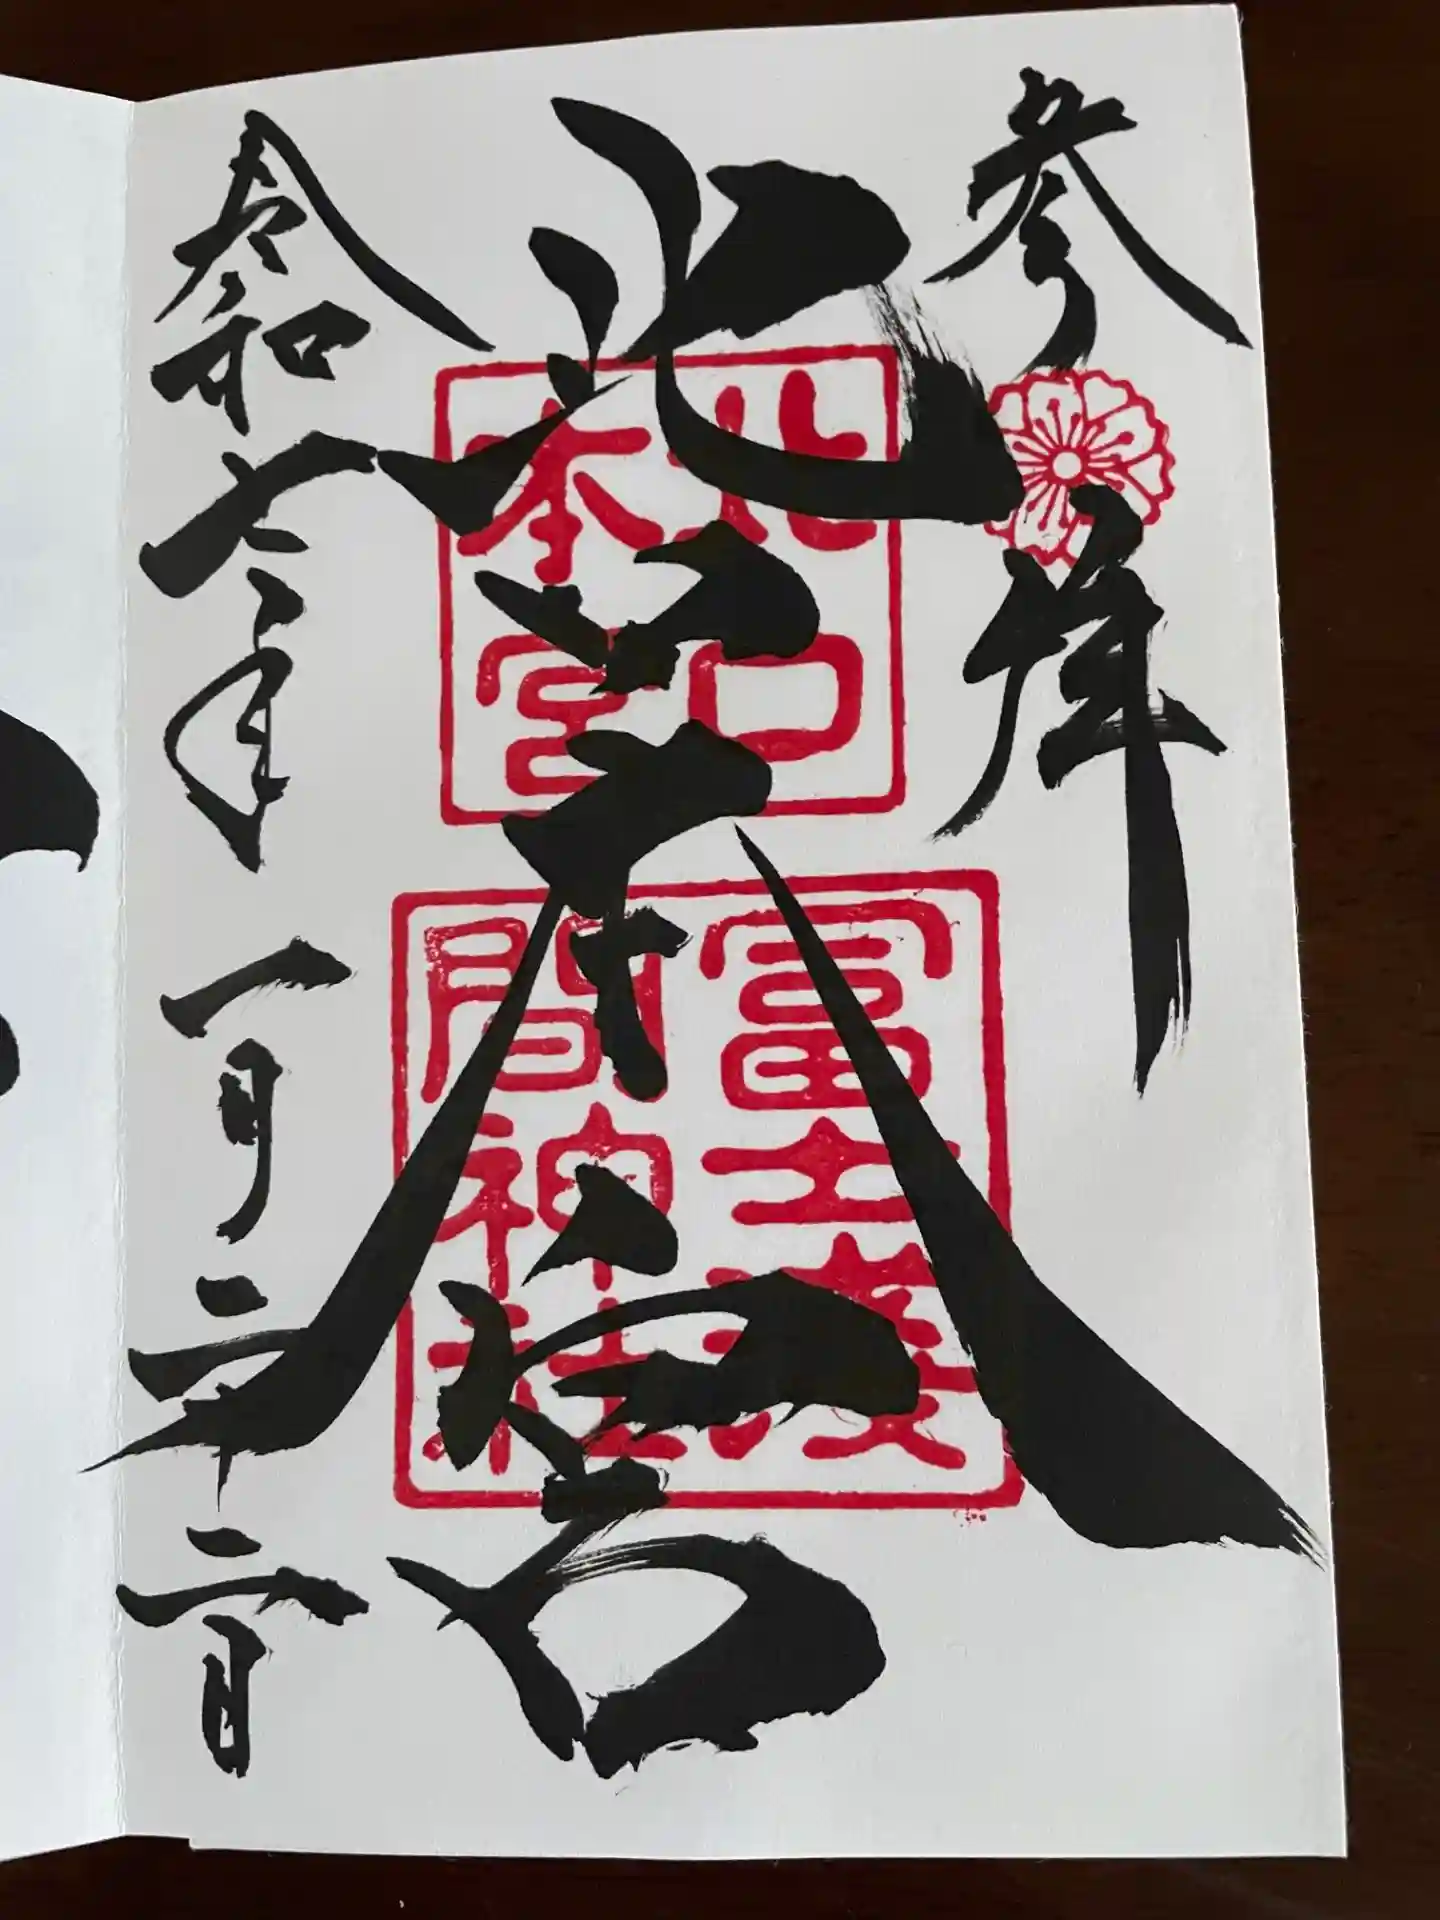 参拝
北口本宮
北口
本宮
冨士浅
間神社
令和七年一月二十二日